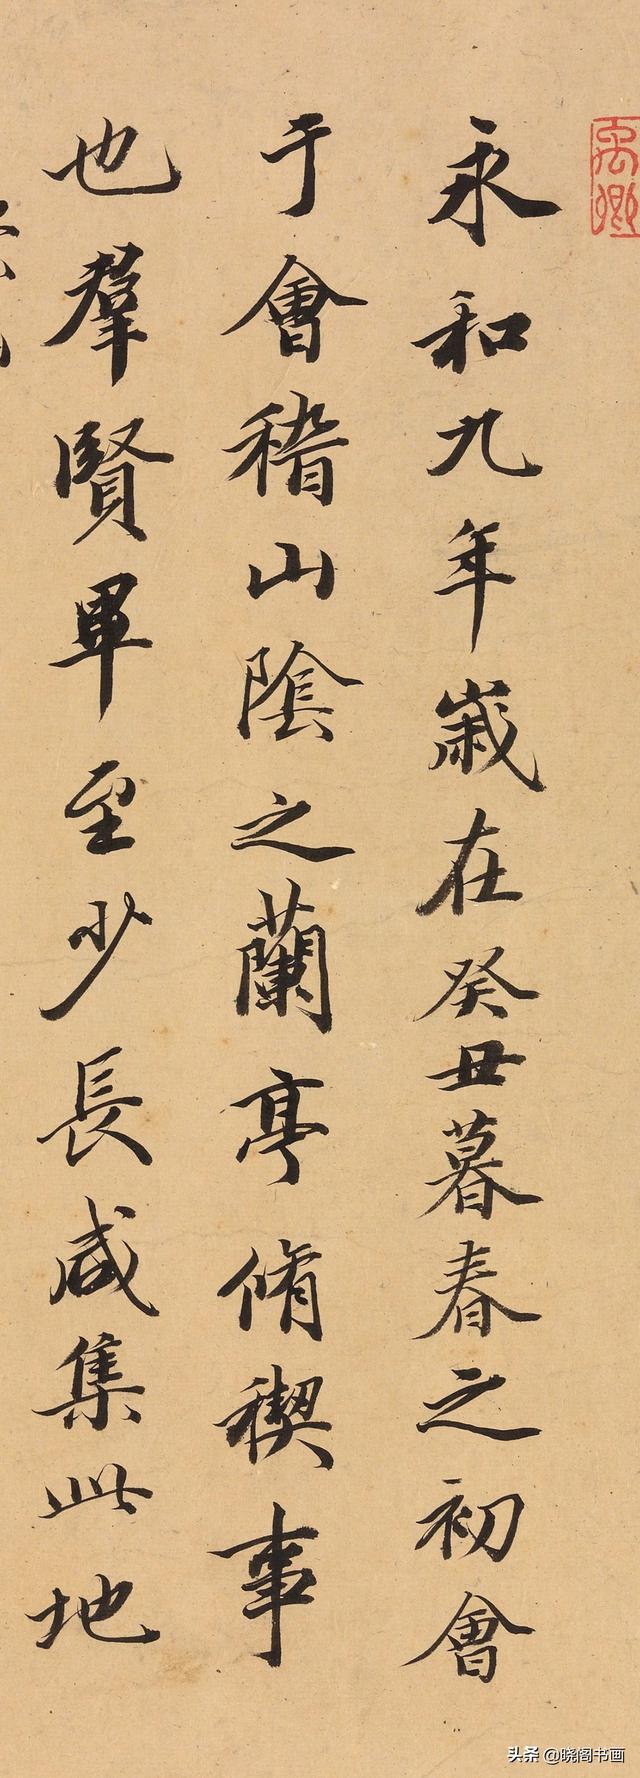 永和九年歲在癸丑暮春之初會
于會稽山陰之蘭亭脩稧事
也羣賢畢至少長咸集此地
禹卿
头条 @晓阁书画